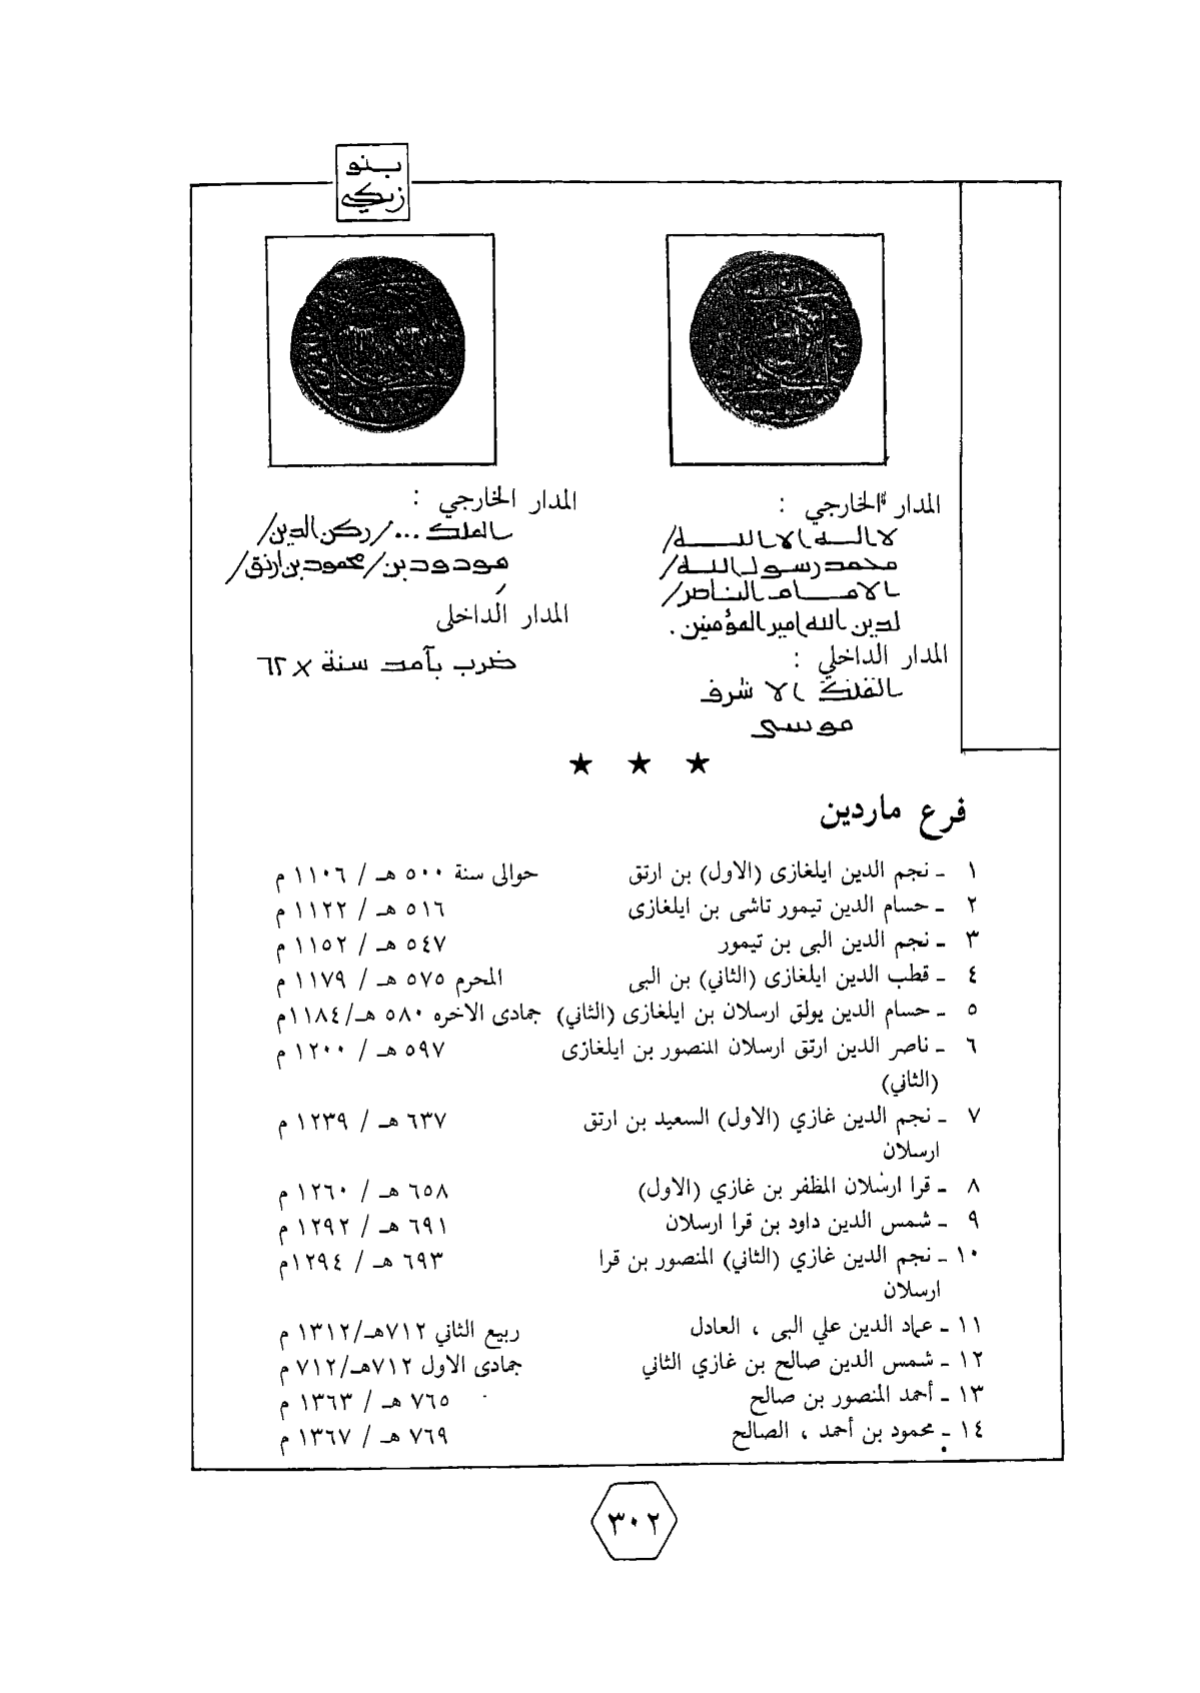 بنو
زنكي
المدار الخارجي :
لا اله الا الله/
محمد رسول الله/
الامام الناصر/
لدين الله امير المؤمنين.
المدار الداخلي :
الملك الا شرف
موسى
المدار الخارجي :
الملك .../ركن الدين/
مودود بن/محمود بن ارتق/
المدار الداخلى
ضرب بآمد سنة ٦٢x
★ ★ ★
فرع ماردين
١ ـ نجم الدين ايلغازى (الاول) بن ارتق حوالى سنة ٥٠٠ هـ / ١١٠٦ م
٢ ـ حسام الدين تيمور تاشى بن ايلغازى ٥١٦ هـ / ١١٢٢ م
٣ ـ نجم الدين البى بن تيمور ٥٤٧ هـ / ١١٥٢ م
٤ ـ قطب الدين ايلغازى (الثاني) بن البى المحرم ٥٧٥ هـ / ١١٧٩ م
٥ ـ حسام الدين يولق ارسلان بن ايلغازى (الثاني) جمادى الاخره ٥٨٠ هـ/١١٨٤م
٦ ـ ناصر الدين ارتق ارسلان المنصور بن ايلغازى ٥٩٧ هـ / ١٢٠٠ م
(الثاني)
٧ ـ نجم الدين غازي (الاول) السعيد بن ارتق ٦٣٧ هـ / ١٢٣٩ م
ارسلان
٨ ـ قرا ارسلان المظفر بن غازي (الاول) ٦٥٨ هـ / ١٢٦٠ م
٩ ـ شمس الدين داود بن قرا ارسلان ٦٩١ هـ / ١٢٩٢ م
١٠ ـ نجم الدين غازي (الثاني) المنصور بن قرا ٦٩٣ هـ / ١٢٩٤م
ارسلان
١١ ـ عماد الدين علي البى ، العادل ربيع الثاني ٧١٢هـ/١٣١٢ م
١٢ ـ شمس الدين صالح بن غازي الثاني جمادى الاول ٧١٢هـ/٧١٢ م
١٣ ـ أحمد المنصور بن صالح ٧٦٥ هـ / ١٣٦٣ م
١٤ ـ محمود بن أحمد ، الصالح ٧٦٩ هـ / ١٣٦٧ م
٣٠٢